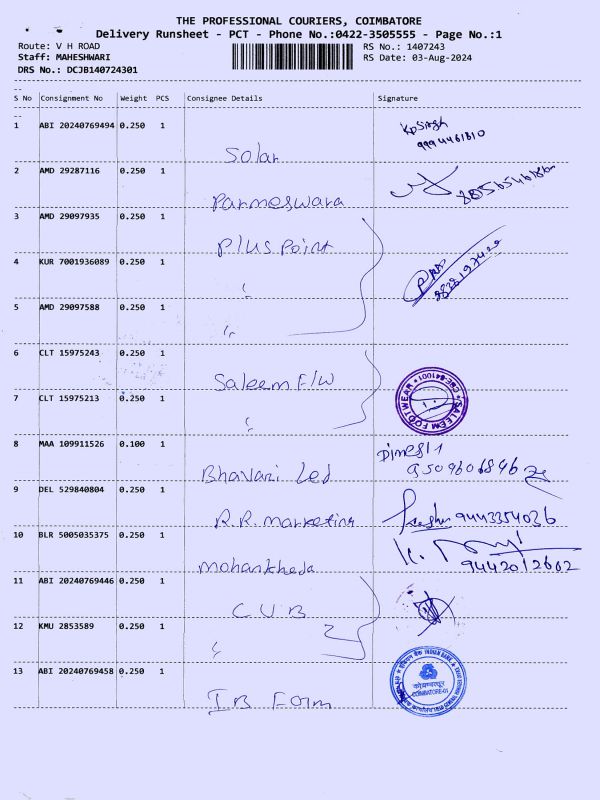 THE PROFESSIONAL COURIERS, COIMBATORE
Delivery Runsheet - PCT - Phone No.:0422-3505555 - Page No.:1
Route: V H ROAD RS No.: 1407243
Staff: MAHESHWARI RS Date: 03-Aug-2024
DRS No.: DCJB140724301
S No Consignment No Weight PCS Consignee Details Signature
1 ABI 20240769494 0.250 1 Solar
2 AMD 29287116 0.250 1 Parmeswara
3 AMD 29097935 0.250 1 Plus Point
4 KUR 7001936089 0.250 1 "
5 AMD 29097588 0.250 1 "
6 CLT 15975243 0.250 1 Saleem F/W
7 CLT 15975213 0.250 1 " SALEEM FOOTWEAR
8 MAA 109911526 0.100 1 Bhavani Led
9 DEL 529840804 0.250 1 R.R. marketing 9443354036
10 BLR 5005035375 0.250 1 mohankheda 9442012662
11 ABI 20240769446 0.250 1 CUB
12 KMU 2853589 0.250 1 "
13 ABI 20240769458 0.250 1 IB Form INDIAN BANK कोयम्बत्तूर COIMBATORE-01